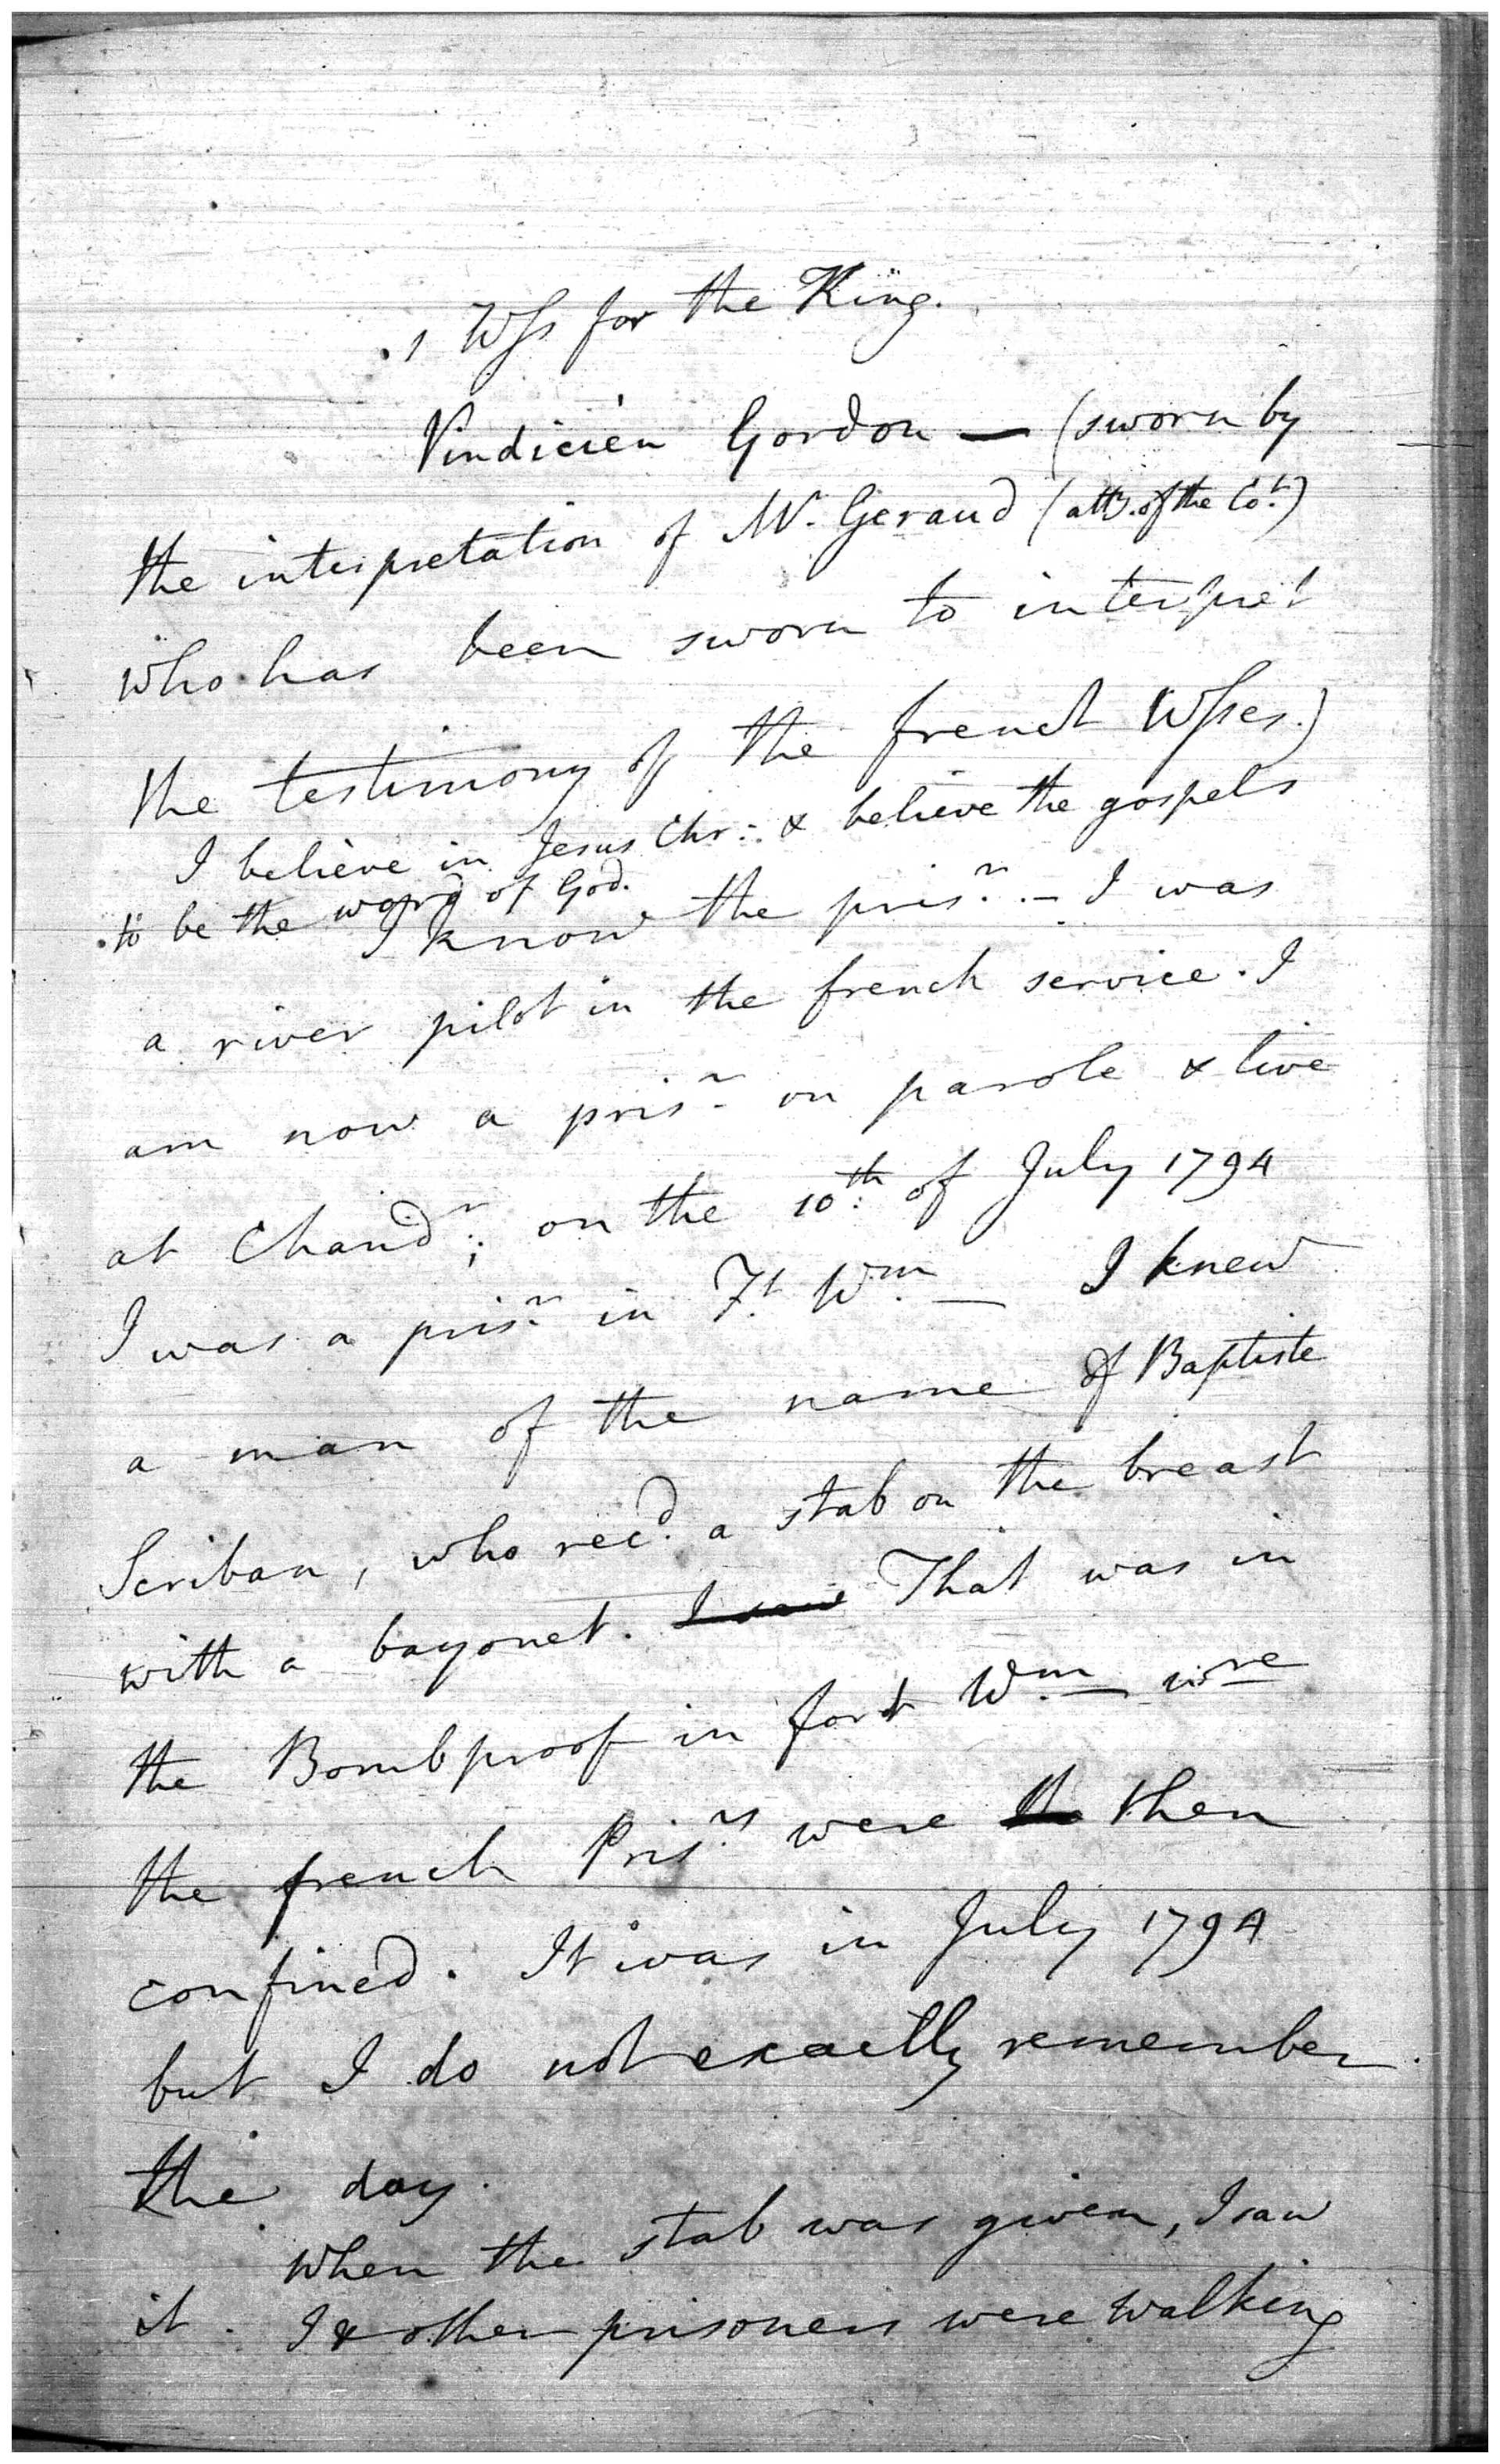 1 Wss for the King.
Vindicien Gordon — (sworn by
the interpretation of Mr. Geraud (atty. of the Cot.)
who has been sworn to interpret
the testimony of the french Wsses.)
I believe in Jesus Chr: & believe the gospels
to be the word of God.
I know the prisr. — I was
a river pilot in the french service. I
am now a prisr. on parole & live
at Chandr.; on the 10th. of July 1794
I was a prisr. in Ft. Wm. — I knew
a man of the name of Baptiste
Scriban, who recd. a stab on the breast
with a bayonet. I saw That was in
the Bombproof in fort Wm. — wre
the french Prisrs. were the then
confined. It was in July 1794
but I do not exactly remember
the day.
When the stab was given, I saw
it. I & other prisoners were walking